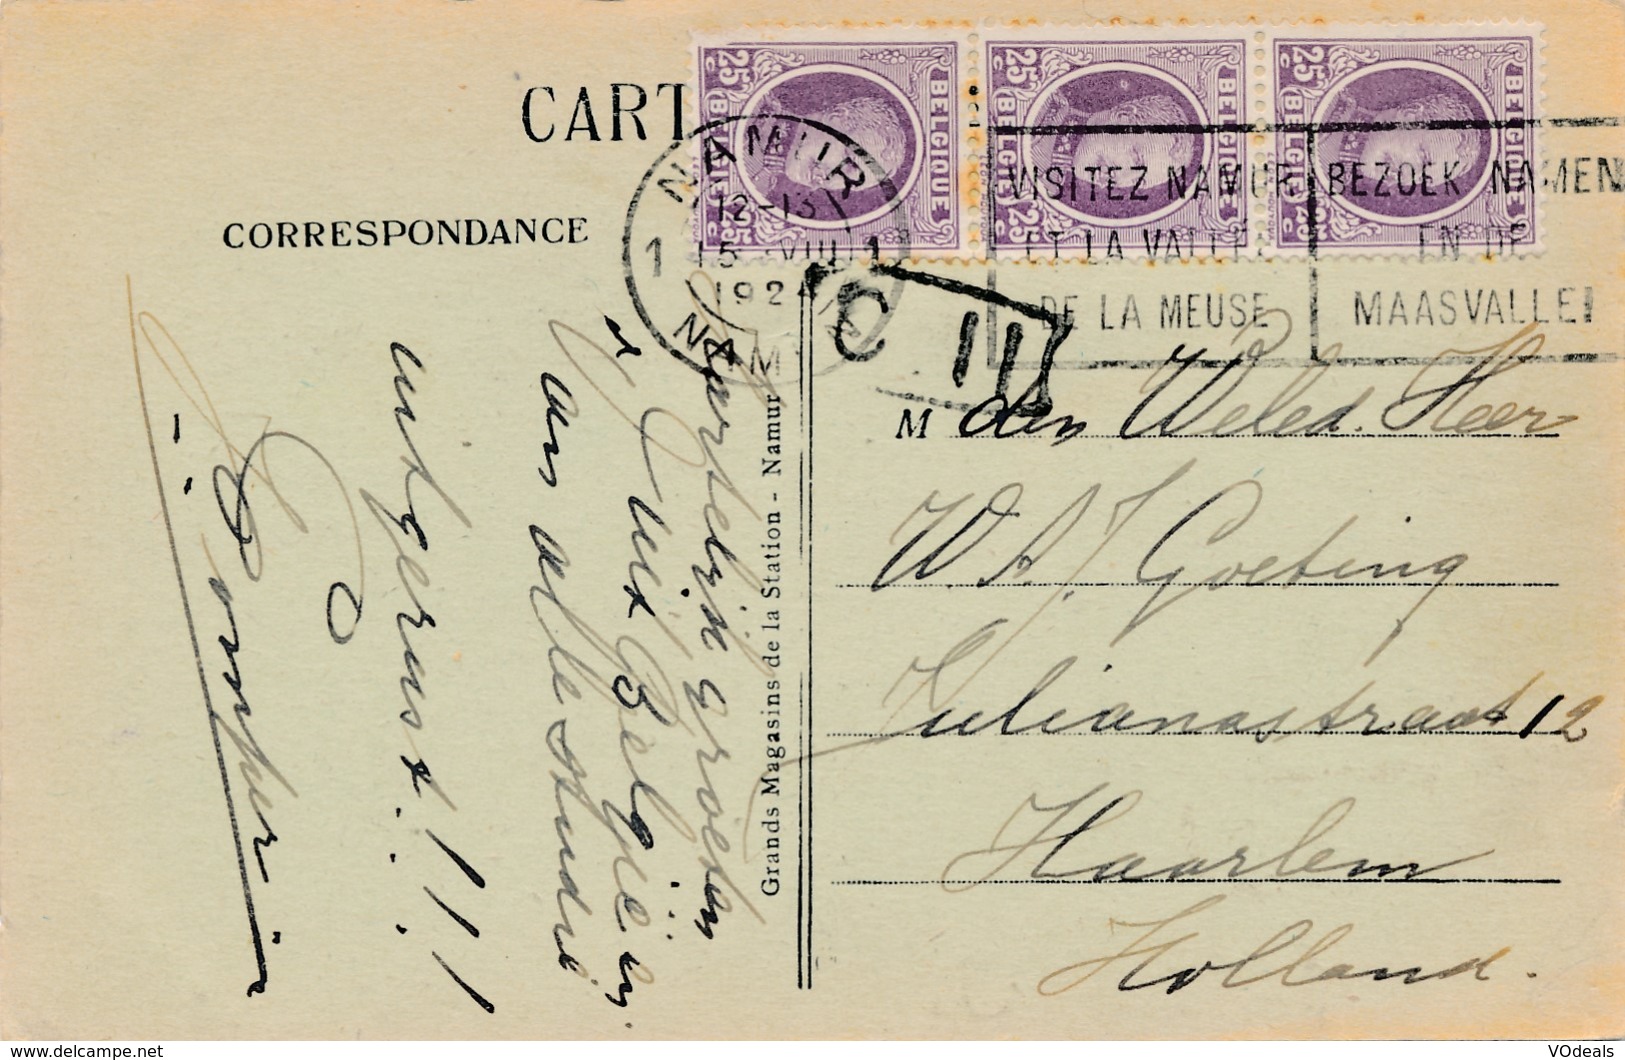 CART
CORRESPONDANCE
25 c BELGIQUE BELGIË 25 c
25 c BELGIQUE BELGIË 25 c
25 c BELGIQUE BELGIË 25 c
NAMUR
12-13
1 15 VIII 1
1924
NAM
VISITEZ NAMUR
ET LA VALLÉE
DE LA MEUSE
BEZOEK NAMEN
EN DE
MAASVALLEI
C III
Grands Magasins de la Station - Namur
Hartelijk groeten
uit België en
ons alle
uitgerust!!!
M den Weled. Heer
W. A. J. Goeting
Julianastraat 12
Haarlem
Holland.
© VOdeals